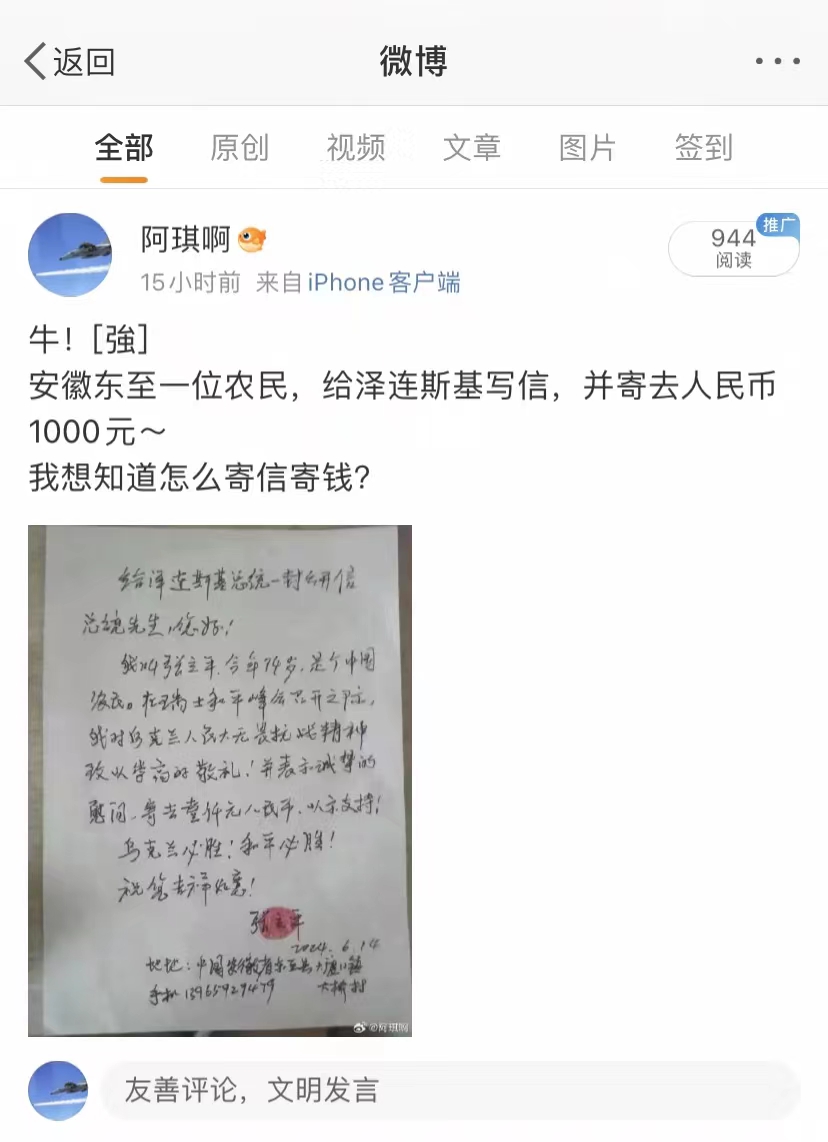 返回
微博
全部 原创 视频 文章 图片 签到
阿琪啊
推广
944
阅读
15小时前 来自 iPhone客户端
牛！[強]
安徽东至一位农民，给泽连斯基写信，并寄去人民币
1000元～
我想知道怎么寄信寄钱？
给泽连斯基总统一封公开信
总统先生，您好！
我叫张立平，今年74岁，是个中国
农民。在瑞士和平峰会召开之际，
我对乌克兰人民大无畏抗战精神
致以崇高的敬礼！并表示诚挚的
慰问，寄去壹仟元人民币，以示支持！
乌克兰必胜！和平必胜！
祝您吉祥如意！
张立平
2024.6.14
地址：中国安徽省东至县大渡口镇
大桥村
手机 13965929479
@阿琪啊
友善评论，文明发言